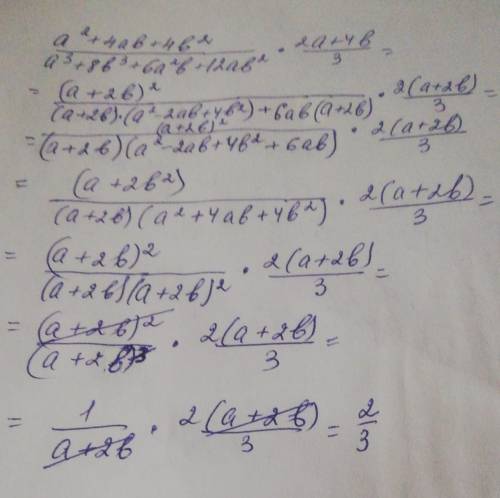 a²+4ab+4b² / a³+8b³+6a²b+12ab² · 2a+4b / 3 =
= (a+2b)² / (a+2b)·(a²-2ab+4b²)+6ab(a+2b) · 2(a+2b) / 3 =
= (a+2b)² / (a+2b)(a²-2ab+4b²+6ab) · 2(a+2b) / 3
= (a+2b²) / (a+2b)(a²+4ab+4b²) · 2(a+2b) / 3 =
= (a+2b)² / (a+2b)(a+2b)² · 2(a+2b) / 3 =
= (a+2b)² / (a+2b)³ · 2(a+2b) / 3 =
= 1 / a+2b · 2(a+2b) / 3 = 2 / 3